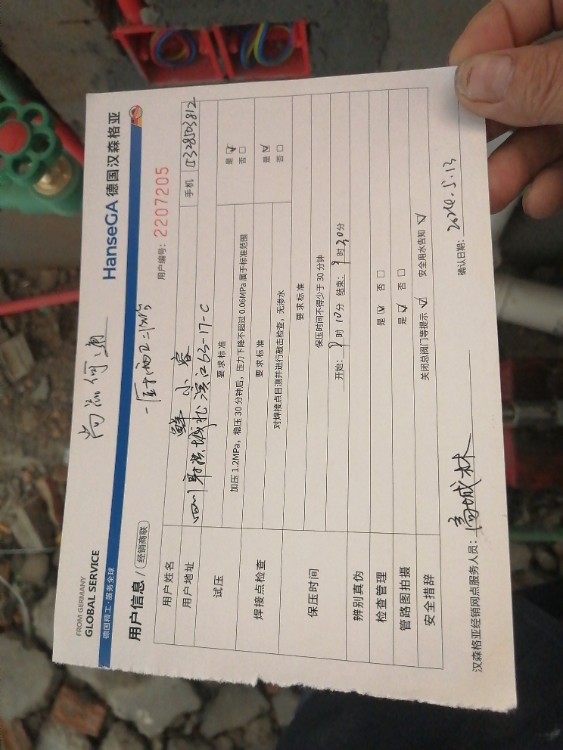 FROM GERMANY
GLOBAL SERVICE
德国精工·服务全球
HanseGA 德国汉森格亚
用户信息/ 经销商联
用户编号: 2207205
用户姓名 鲜小容
手机 15328503812
用户地址 四川 城北滨江63-17-C
试压
要求标准
加压 1.2MPa, 稳压 30 分钟后, 压力下降不超过 0.06MPa 属于标准范围
是 ☑
否 □
焊接点检查
要求标准
对焊接点目测并进行敲击检查, 无渗水
是 ☑
否 □
保压时间
要求标准
保压时间不得少于 30 分钟
开始: 时 10分 结束: 9时20分
辨别真伪
检查管理 是 ☑ 否 □
管路图拍摄 是 ☑ 否 □
安全措辞 关闭总阀门等提示 ☑ 安全用水告知 ☑
汉森格亚经销网点服务人员: 城林
确认日期: 2024.5.13